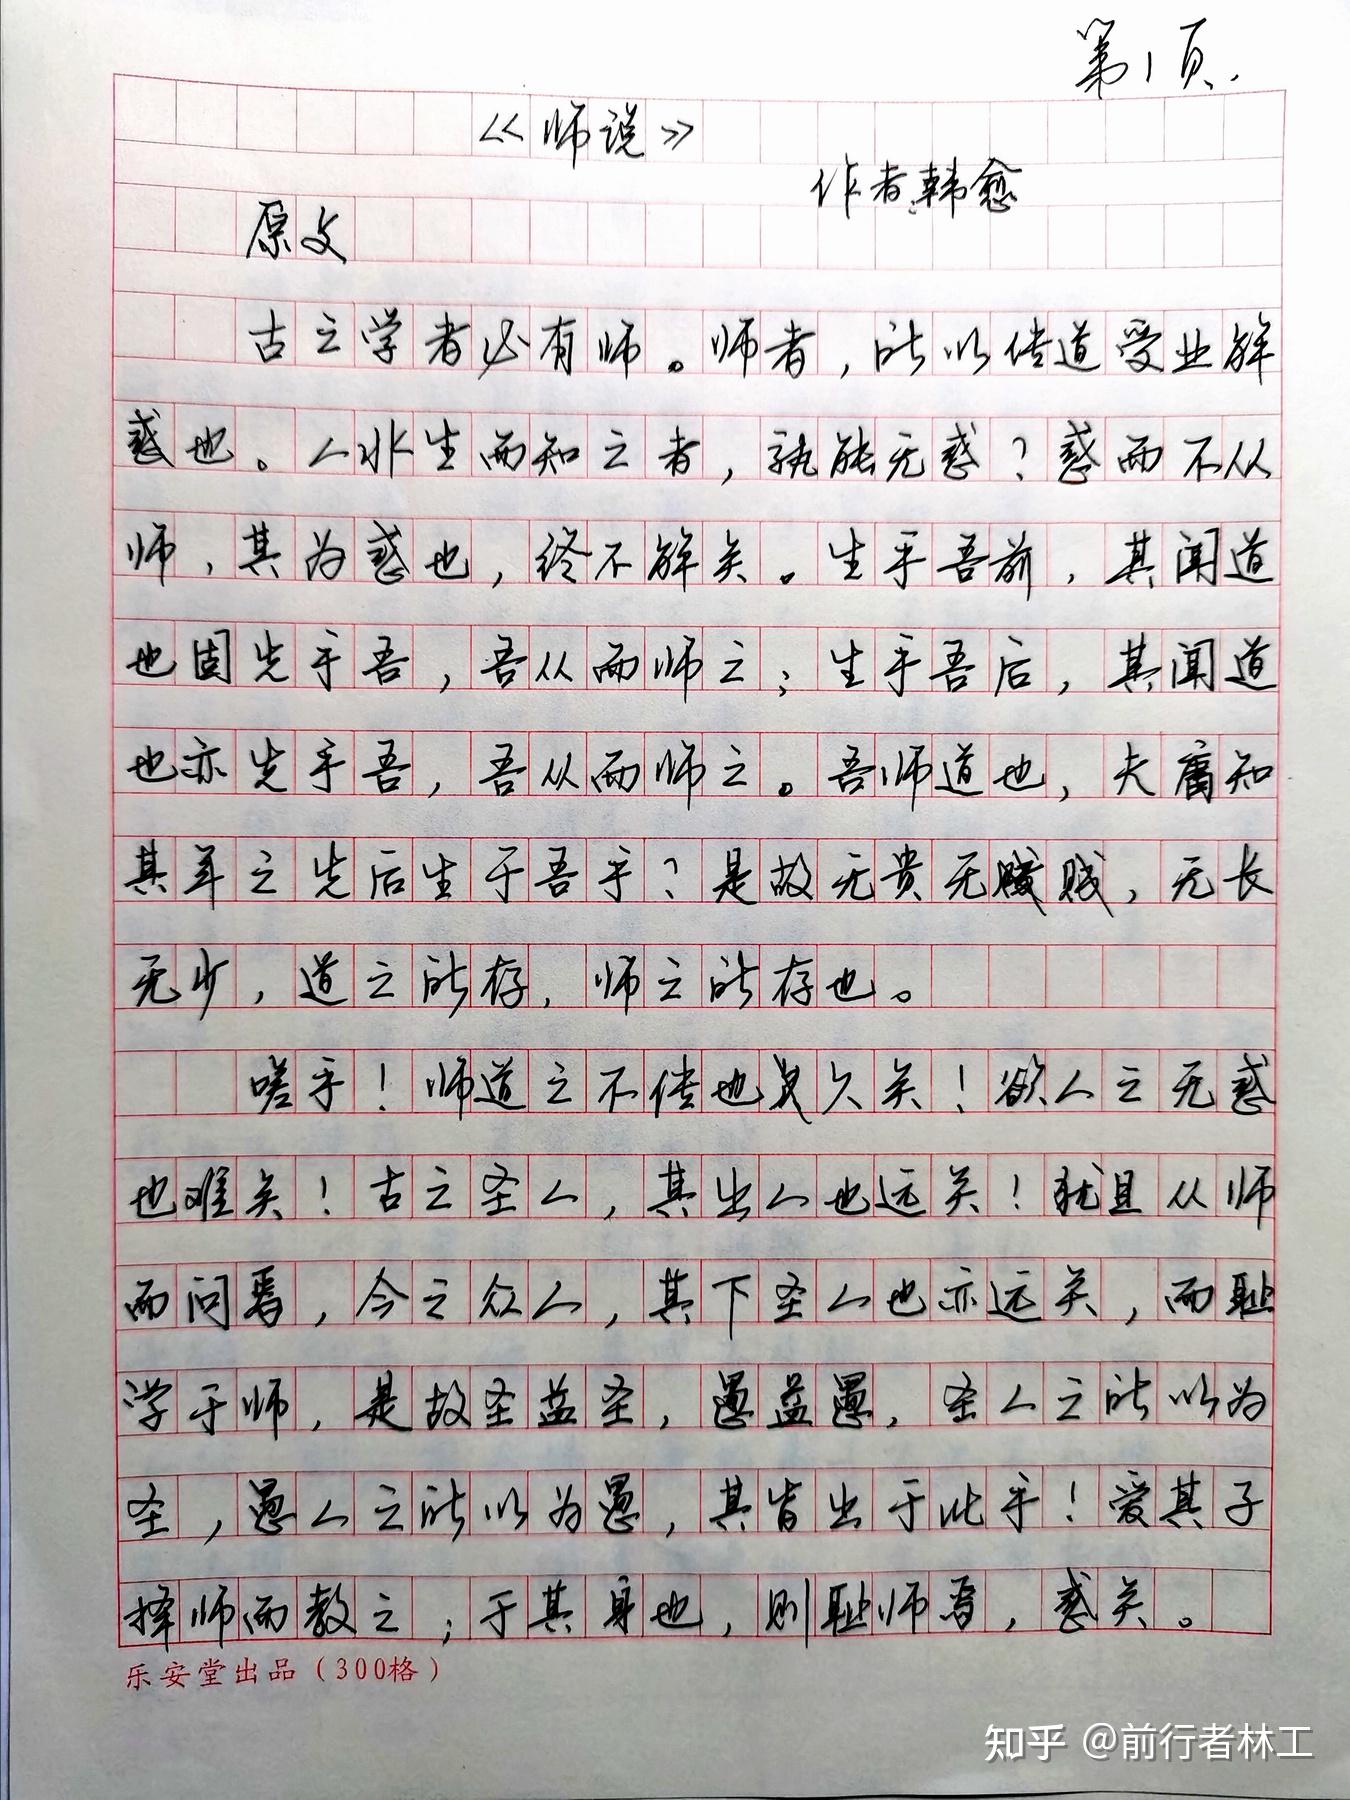 第1页.
《师说》
作者韩愈
原文
古之学者必有师。师者,所以传道受业解
惑也。人非生而知之者,孰能无惑?惑而不从
师,其为惑也,终不解矣。生乎吾前,其闻道
也固先乎吾,吾从而师之;生乎吾后,其闻道
也亦先乎吾,吾从而师之。吾师道也,夫庸知
其年之先后生于吾乎?是故无贵无贱贱,无长
无少,道之所存,师之所存也。
嗟乎!师道之不传也久矣!欲人之无惑
也难矣!古之圣人,其出人也远矣!犹且从师
而问焉,今之众人,其下圣人也亦远矣,而耻
学于师,是故圣益圣,愚益愚,圣人之所以为
圣,愚人之所以为愚,其皆出于此乎!爱其子
择师而教之;于其身也,则耻师焉,惑矣。
乐安堂出品(300格)
知乎 @前行者林工